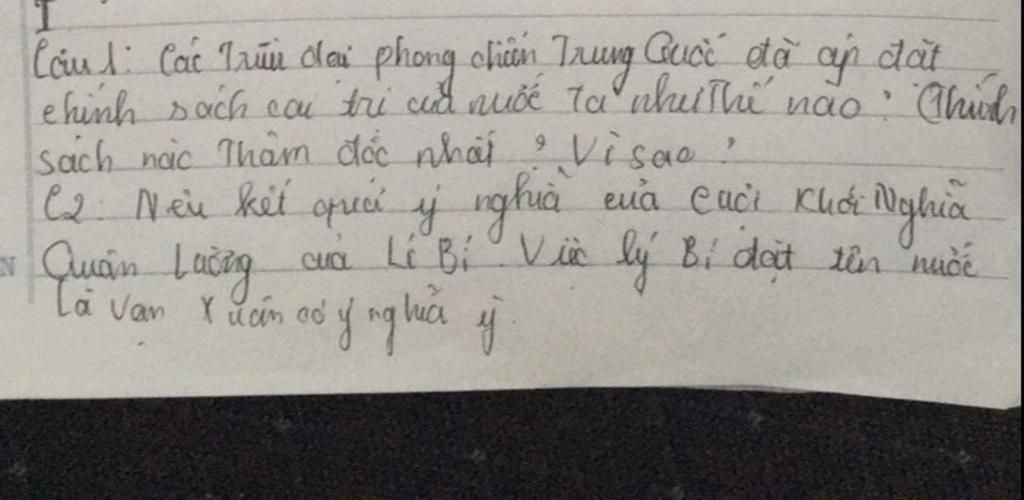 I
Câu 1: Các Triều đại phong chiến Trung Quốc đã áp đặt
chính sách cai trị của nước ta như Thế nào? Chính
sách nào Thâm độc nhất? Vì sao?
C2: Nêu kết quả ý nghĩa của cuộc Khởi Nghĩa
Quân Lương của Lí Bí Việc lý Bí đặt tên nước
là Vạn Xuân có ý nghĩa gì